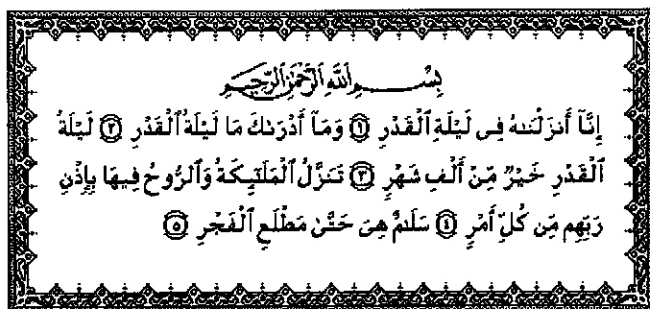 بِسْمِ ٱللَّهِ ٱلرَّحْمَٰنِ ٱلرَّحِيمِ
إِنَّآ أَنزَلْنَٰهُ فِى لَيْلَةِ ٱلْقَدْرِ ۝١ وَمَآ أَدْرَىٰكَ مَا لَيْلَةُ ٱلْقَدْرِ ۝٢ لَيْلَةُ
ٱلْقَدْرِ خَيْرٌ مِّنْ أَلْفِ شَهْرٍ ۝٣ تَنَزَّلُ ٱلْمَلَٰٓئِكَةُ وَٱلرُّوحُ فِيهَا بِإِذْنِ
رَبِّهِم مِّن كُلِّ أَمْرٍ ۝٤ سَلَٰمٌ هِىَ حَتَّىٰ مَطْلَعِ ٱلْفَجْرِ ۝٥